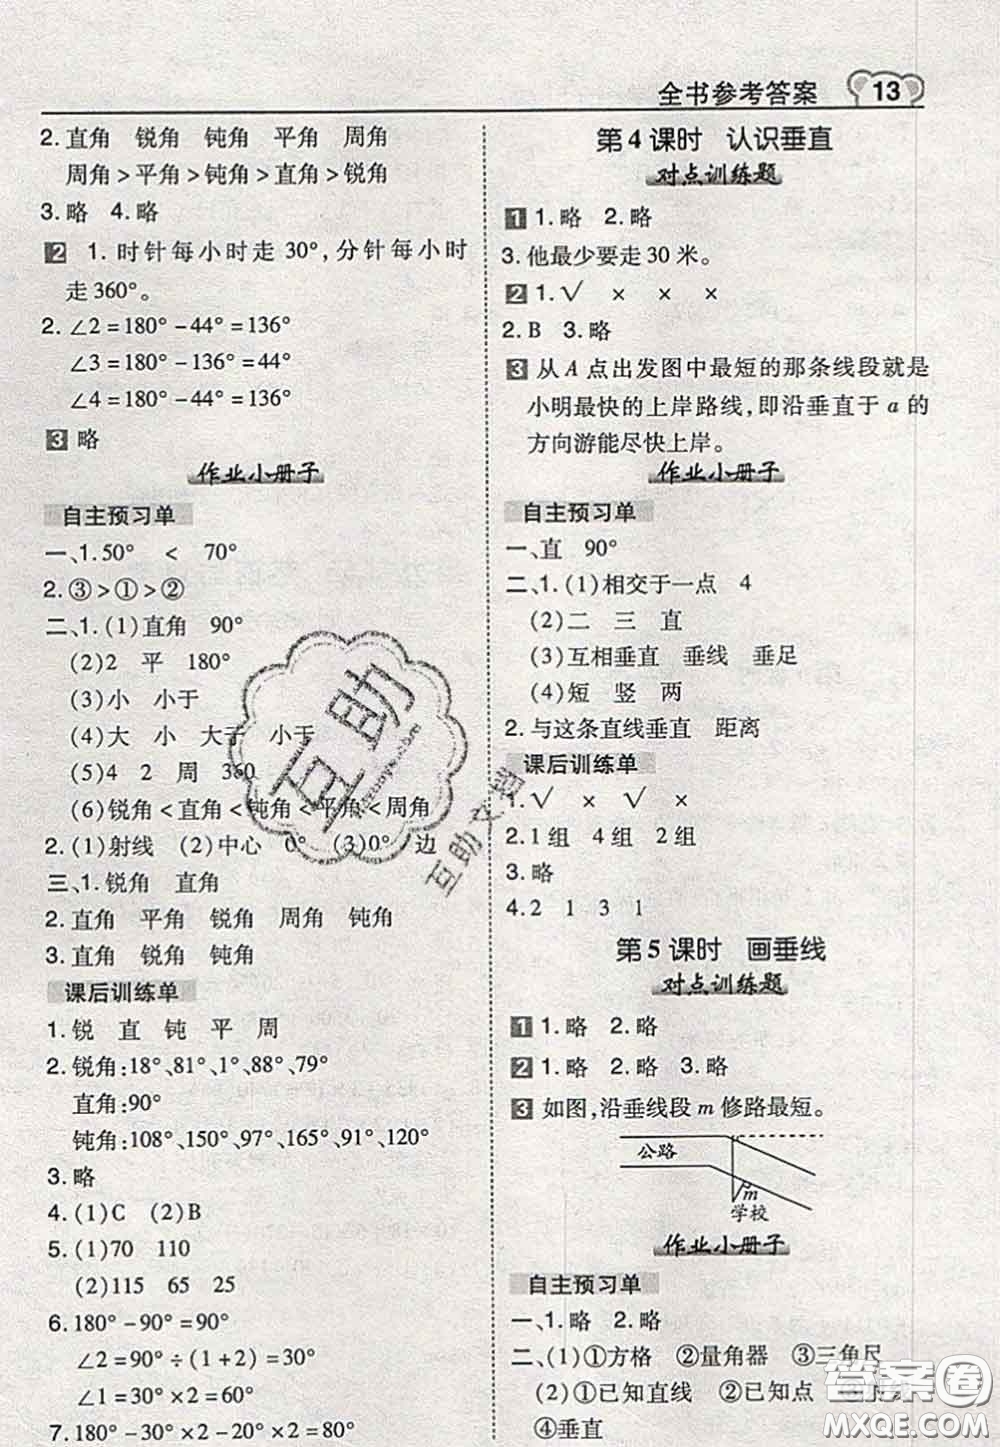 全书参考答案 13
2. 直角 锐角 钝角 平角 周角
周角>平角>钝角>直角>锐角
3. 略 4. 略
2 1. 时针每小时走30°,分针每小时
走360°。
2. ∠2=180°-44°=136°
∠3=180°-136°=44°
∠4=180°-44°=136°
3 略
作业小册子
自主预习单
一、1. 50° < 70°
2. ③>①>②
二、1. (1)直角 90°
(2)2 平 180°
(3)小 小于
(4)大 小 大于 小于
(5)4 2 周 360
(6)锐角<直角<钝角<平角<周角
2. (1)射线 (2)中心 0° (3)0° 边
三、1. 锐角 直角
2. 直角 平角 锐角 周角 钝角
3. 直角 锐角 钝角
课后训练单
1. 锐 直 钝 平 周
2. 锐角:18°、81°、1°、88°、79°
直角:90°
钝角:108°、150°、97°、165°、91°、120°
3. 略
4. (1)C (2)B
5. (1)70 110
(2)115 65 25
6. 180°-90°=90°
∠2=90°÷(1+2)=30°
∠1=30°×2=60°
7. 180°-30°×2-20°×2=80°
第4课时 认识垂直
对点训练题
1 1. 略 2. 略
3. 他最少要走30米。
2 1. √ × × ×
2. B 3. 略
3 从A点出发图中最短的那条线段就是
小明最快的上岸路线,即沿垂直于a的
方向游能尽快上岸。
作业小册子
自主预习单
一、直 90°
二、1. (1)相交于一点 4
(2)二 三 直
(3)互相垂直 垂线 垂足
(4)短 竖 两
2. 与这条直线垂直 距离
课后训练单
1. √ × √ ×
2. 1组 4组 2组
3. 略
4. 2 1 3 1
第5课时 画垂线
对点训练题
1 1. 略 2. 略
2 1. 略 2. 略 3. 略
3 如图,沿垂线段m修路最短。
公路
m
学校
作业小册子
自主预习单
一、1. 略 2. 略
二、(1)①方格 ②量角器 ③三角尺
(2)①已知直线 ②已知点
④垂直
互助
互助文
答案圈
MXQE.COM